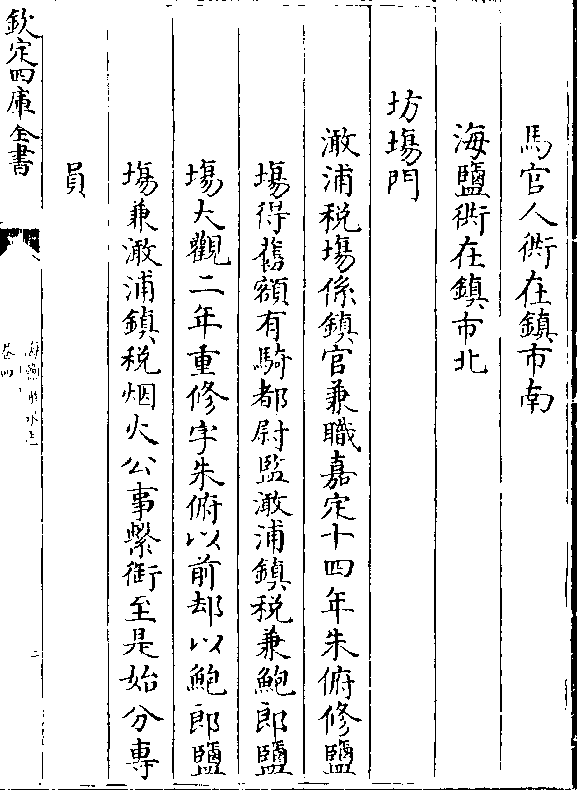 馬官人衖在鎮市南
海鹽衖在鎮市北
坊塲門
澉浦税塲係鎮官兼職嘉定十四年朱俯修鹽
塲得舊額有騎都尉監澉浦鎮税兼鮑郎鹽
塲大觀二年重修字朱俯以前却以鮑郎鹽
塲兼澉浦鎮税烟火公事繫銜至是始分專
員
欽定四庫全書
卷四
二